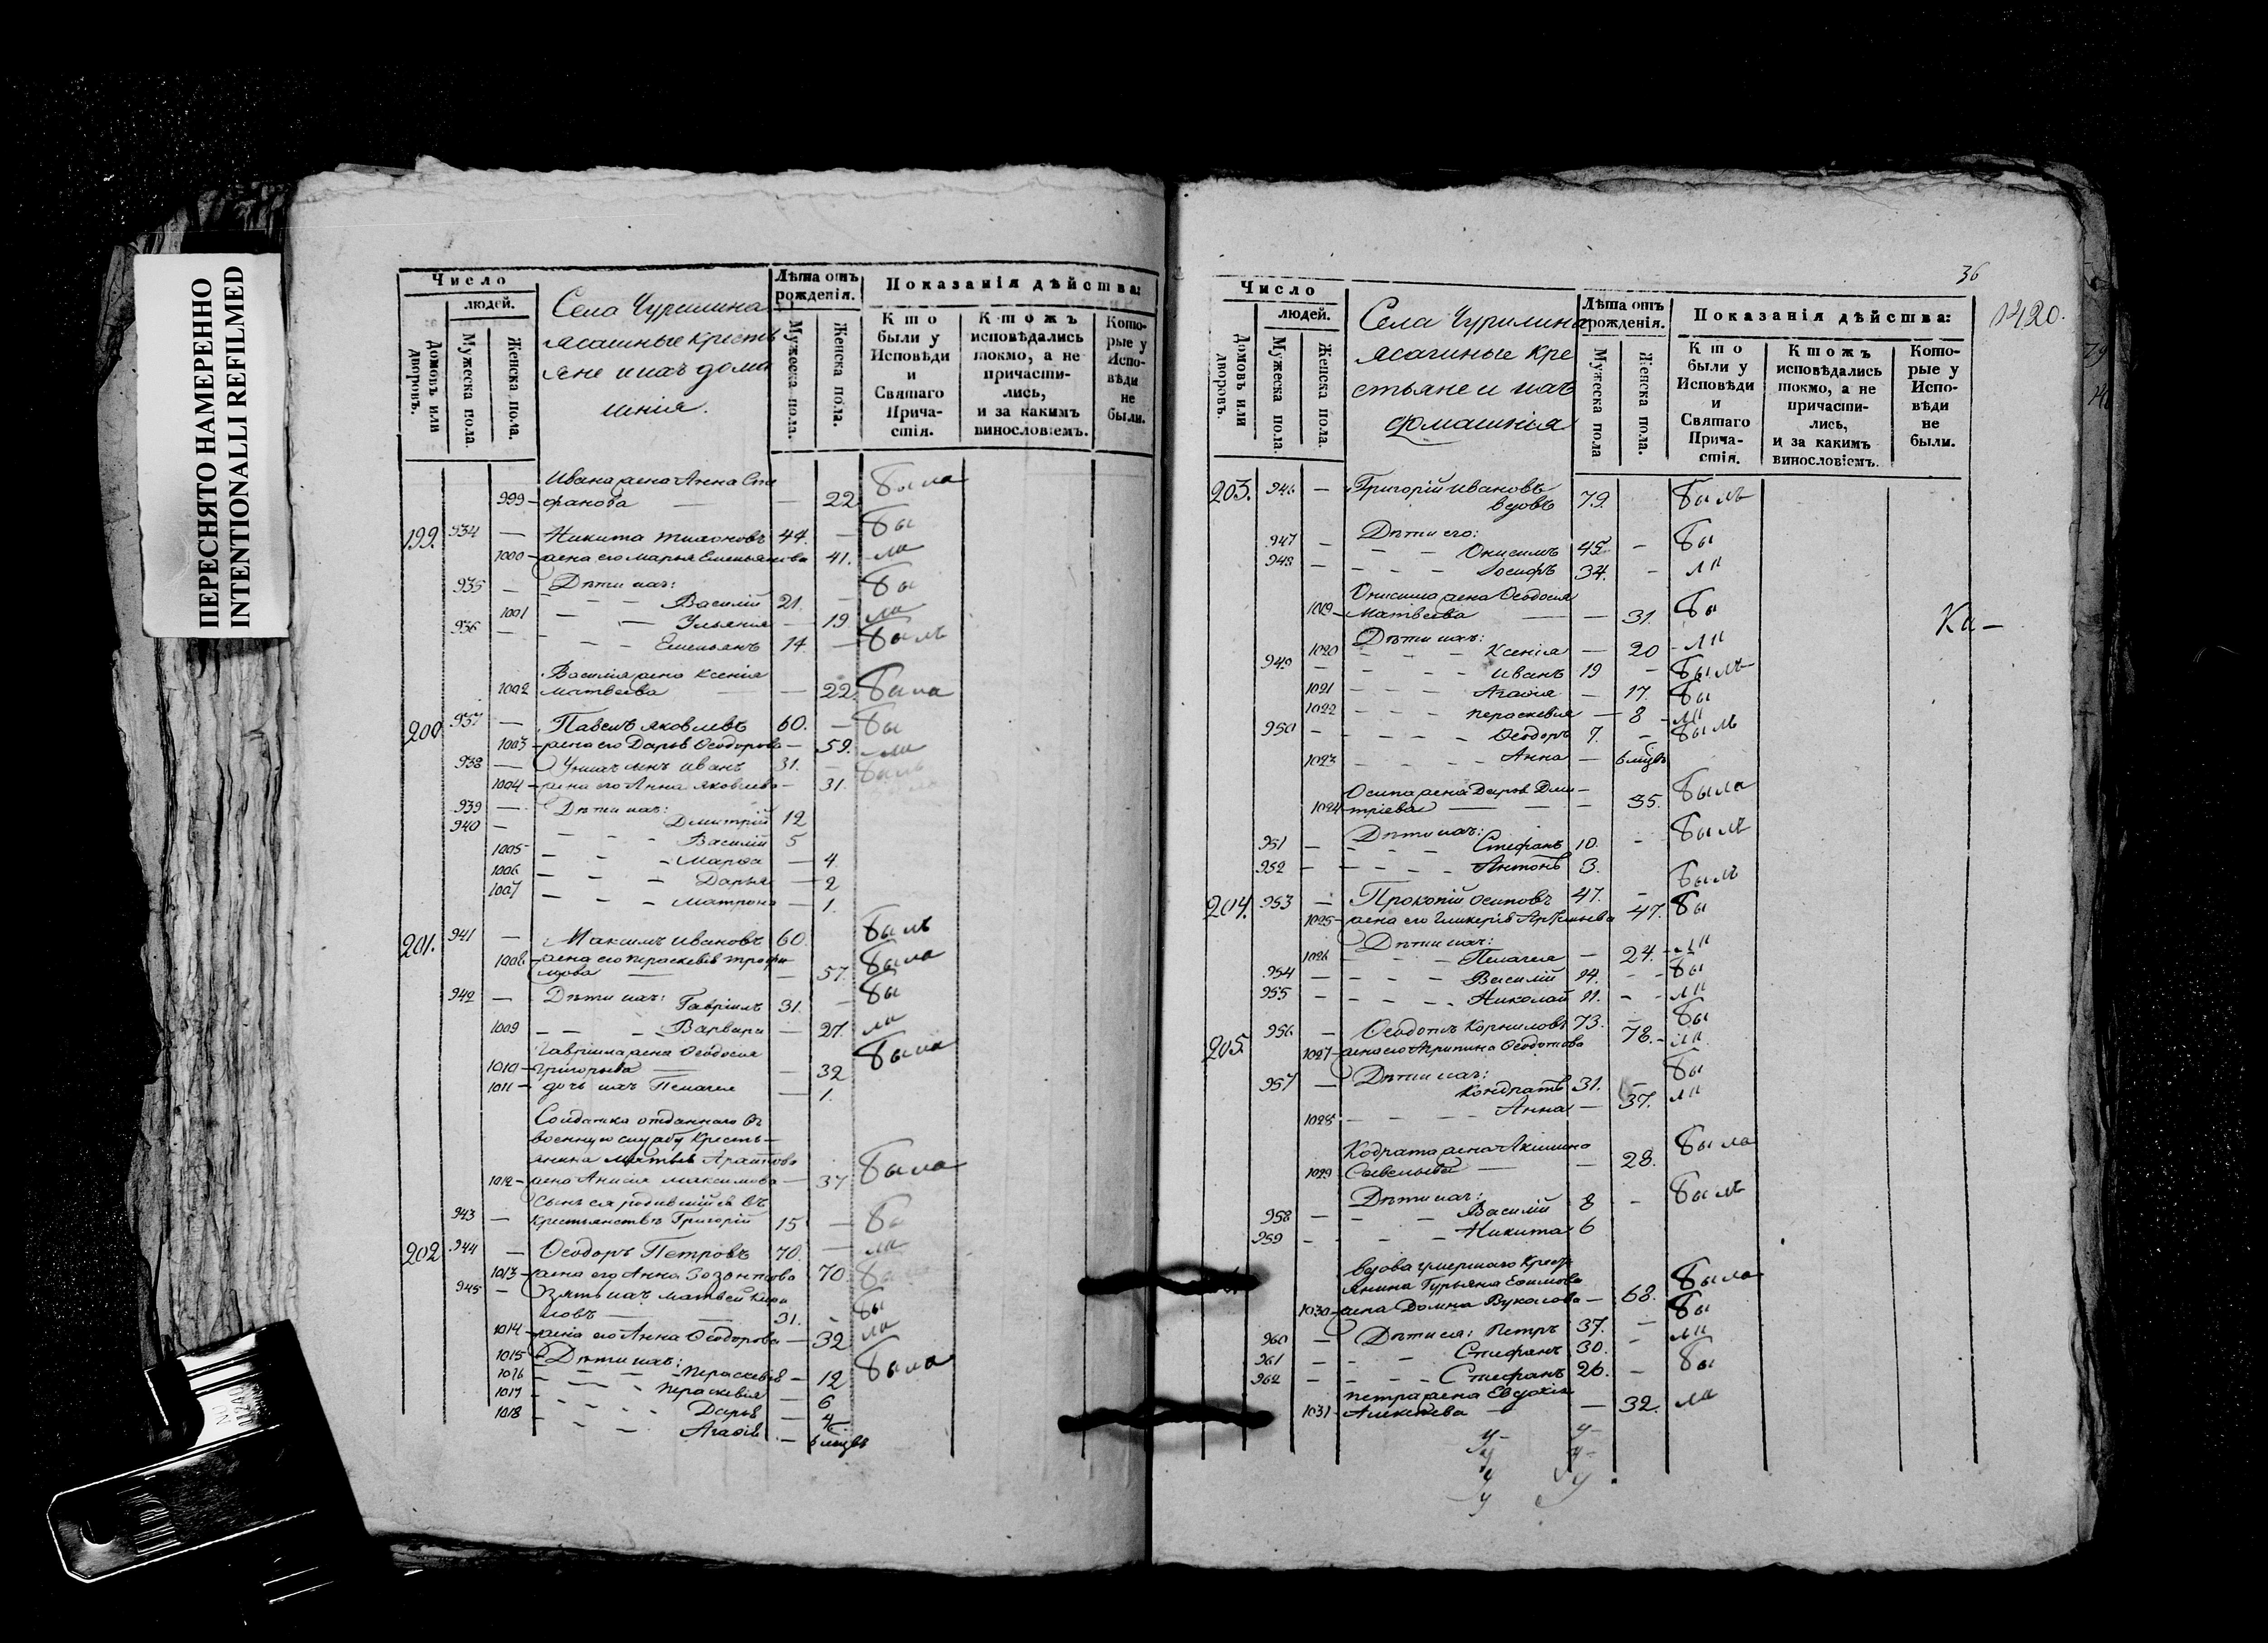 ПЕРЕСНЯТО НАМЕРЕННО
INTENTIONALLI REFILMED
Число
людей.
Домовъ или дворовъ.
Мужеска пола.
Женска пола.
Села Чурилина
ясашные кресть
яне и ихъ дома
шнія.
Лѣта отъ рожденія.
Мужеска пола.
Женска пола.
Показанія дѣйства:
Кто были у Исповѣди и Святаго Причастія.
Ктожъ исповѣдались токмо, а не причастились, и за какимъ винословіемъ.
Которые у Исповѣди не были.
Ивана жена Анна Сте
999 – фанова — — 22 была
199. 934 — Никита Тихоновъ 44. — бы
1000 – жена его Марья Емельянова 41. ли
Дѣти ихъ:
935 — Василій 21. — бы
1001 — Ульянія — 19 ли
936 — Емельянъ 14. — былъ
Василія жена Ксенія
1002 Матвеева — — 22 была
200 937 — Павелъ Яковлевъ 60. — бы
1003 – жена его Дарья Ѳеодорова — 59. ли
938 — У нихъ сынъ Иванъ 31.
1004 – жена его Анна Яковлева — 31.
Дѣти ихъ:
939 — Дмитрій 12
940 — Василій 5
1005 — Марѳа — 4.
1006 — Дарья — 2
1007 — Матрона — 1.
201. 941 — Максимъ Ивановъ 60. былъ
1008 – жена его Пераскевія Трофи
мова — — 57. была
942 — Дѣти ихъ: Гавріилъ 31. — бы
1009 — Варвара — 27 ли
Гавріила жена Ѳеодосія
1010 – Григорьева — — 32 была
1011 – дочь ихъ Пелагея — 1.
Солдатка отданнаго въ
военную службу кресть–
янина Матвея
1012 – жена Анисія Максимова — 37 была
Сынъ ея родившійся въ
943 — крестьянствѣ Григорій 15 — бы
202 944 — Ѳеодоръ Петровъ 70. — ли
1013 – жена его Анна 70
945 — Зять ихъ Матвей Кири
ловъ — — 31. — бы
1014 – жена его Анна Ѳеодорова — 32 ли
Дѣти ихъ:
1015 — Пераскевія — 12 была
1016 — Пераскевія — 6
1017 — Дарья — 4
1018 — Агаѳія — 6 мцвъ
36
1420.
Число
людей.
Домовъ или дворовъ.
Мужеска пола.
Женска пола.
Села Чурилина
ясашные кре
стьяне и ихъ
домашнія
Лѣта отъ рожденія.
Мужеска пола
Женска пола.
Показанія дѣйства:
Кто были у Исповѣди и Святаго Причастія.
Ктожъ исповѣдались токмо, а не причастились, и за какимъ винословіемъ.
Которые у Исповѣди не были.
203. 946 — Григорій Ивановъ
вдовъ 79. былъ
Дѣти его:
947 — Онисимъ 45. — бы
948 — Іосифъ 34. — ли
Онисима жена Ѳеодосія
1019 – Матвеева — — 31. бы
Дѣти ихъ:
1020 — Ксенія — 20 ли
949 — Иванъ 19 — былъ
1021 — Агаѳія — 17. бы
1022 — Пераскевія — 8 ли
950 — Ѳеодоръ 7. — былъ
1023 — Анна — 6 мцвъ
Осипа жена Дарья Дми–
1024 – тріева — — 35. была
Дѣти ихъ:
951 — Стефанъ 10. — былъ
952 — Антонъ 3.
204. 953 — Прокопій Осиповъ 47. — былъ
1025 – жена его Гликерія Артемьева 47. бы
Дѣти ихъ:
1026 — Пелагея — 24. ли
954 — Василій 14. — бы
955 — Николай 11. — ли
205. 956 — Ѳеодотъ Корниловъ 73. — бы
1027 – жена его Агрипина Ѳеодотова 78. ли
Дѣти ихъ:
957 — Кондратъ 31. — бы
1028 — Анна — 37. ли
Кодрата жена Акилина
1029 Савельева — — 28. была
Дѣти ихъ:
958 — Василій 8 — былъ
959 — Никита 6
Вдова умершаго крест
янина Гурьяна Еѳимова
1030 – жена Домна Вуколова — 68. была
960 — Дѣти ея: Петръ 37. — бы
961 — Стефанъ 30. — ли
962 — Стефанъ 26. — бы
Петра жена Евдокія
1031 – Алексѣева — 32. ли